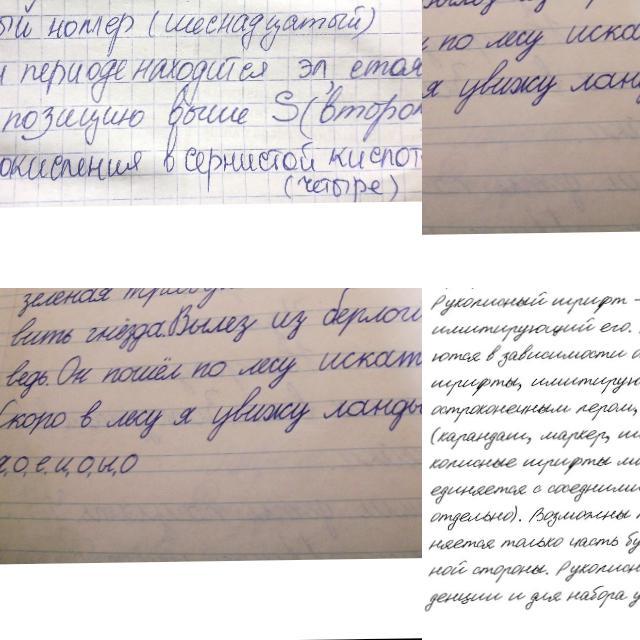 ый номер (шеснадцатый)
и периоде находится эл, стоя
позицию выше S (второ
окисления в сернистой кислот
(четыре)
по лесу иска
я увижу ланд
зеленая
вить гнёзда. Вылез из берлоги
ведь. Он пошёл по лесу искат
Скоро в лесу я увижу ланды
а, о, е, и, о, ы, о
Рукописный шрифт -
имитирующий его.
ются в зависимости о
шрифты, имитирую
остроконечным пером,
(карандаш, маркер,
кописные шрифты
единяется с соседними
отдельно). Возможны
няется только часть бу
ной стороны. Рукописн
денции и для набора